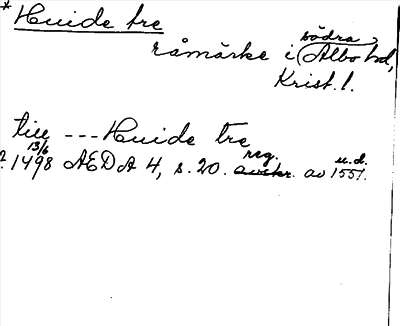 *Huide tre
råmärke i södra Albo hd,
Krist. l.
till --- Huide tre
? 13/6 1498 AEDA 4, s. 20. reg. avskr. av u.d. 1551.